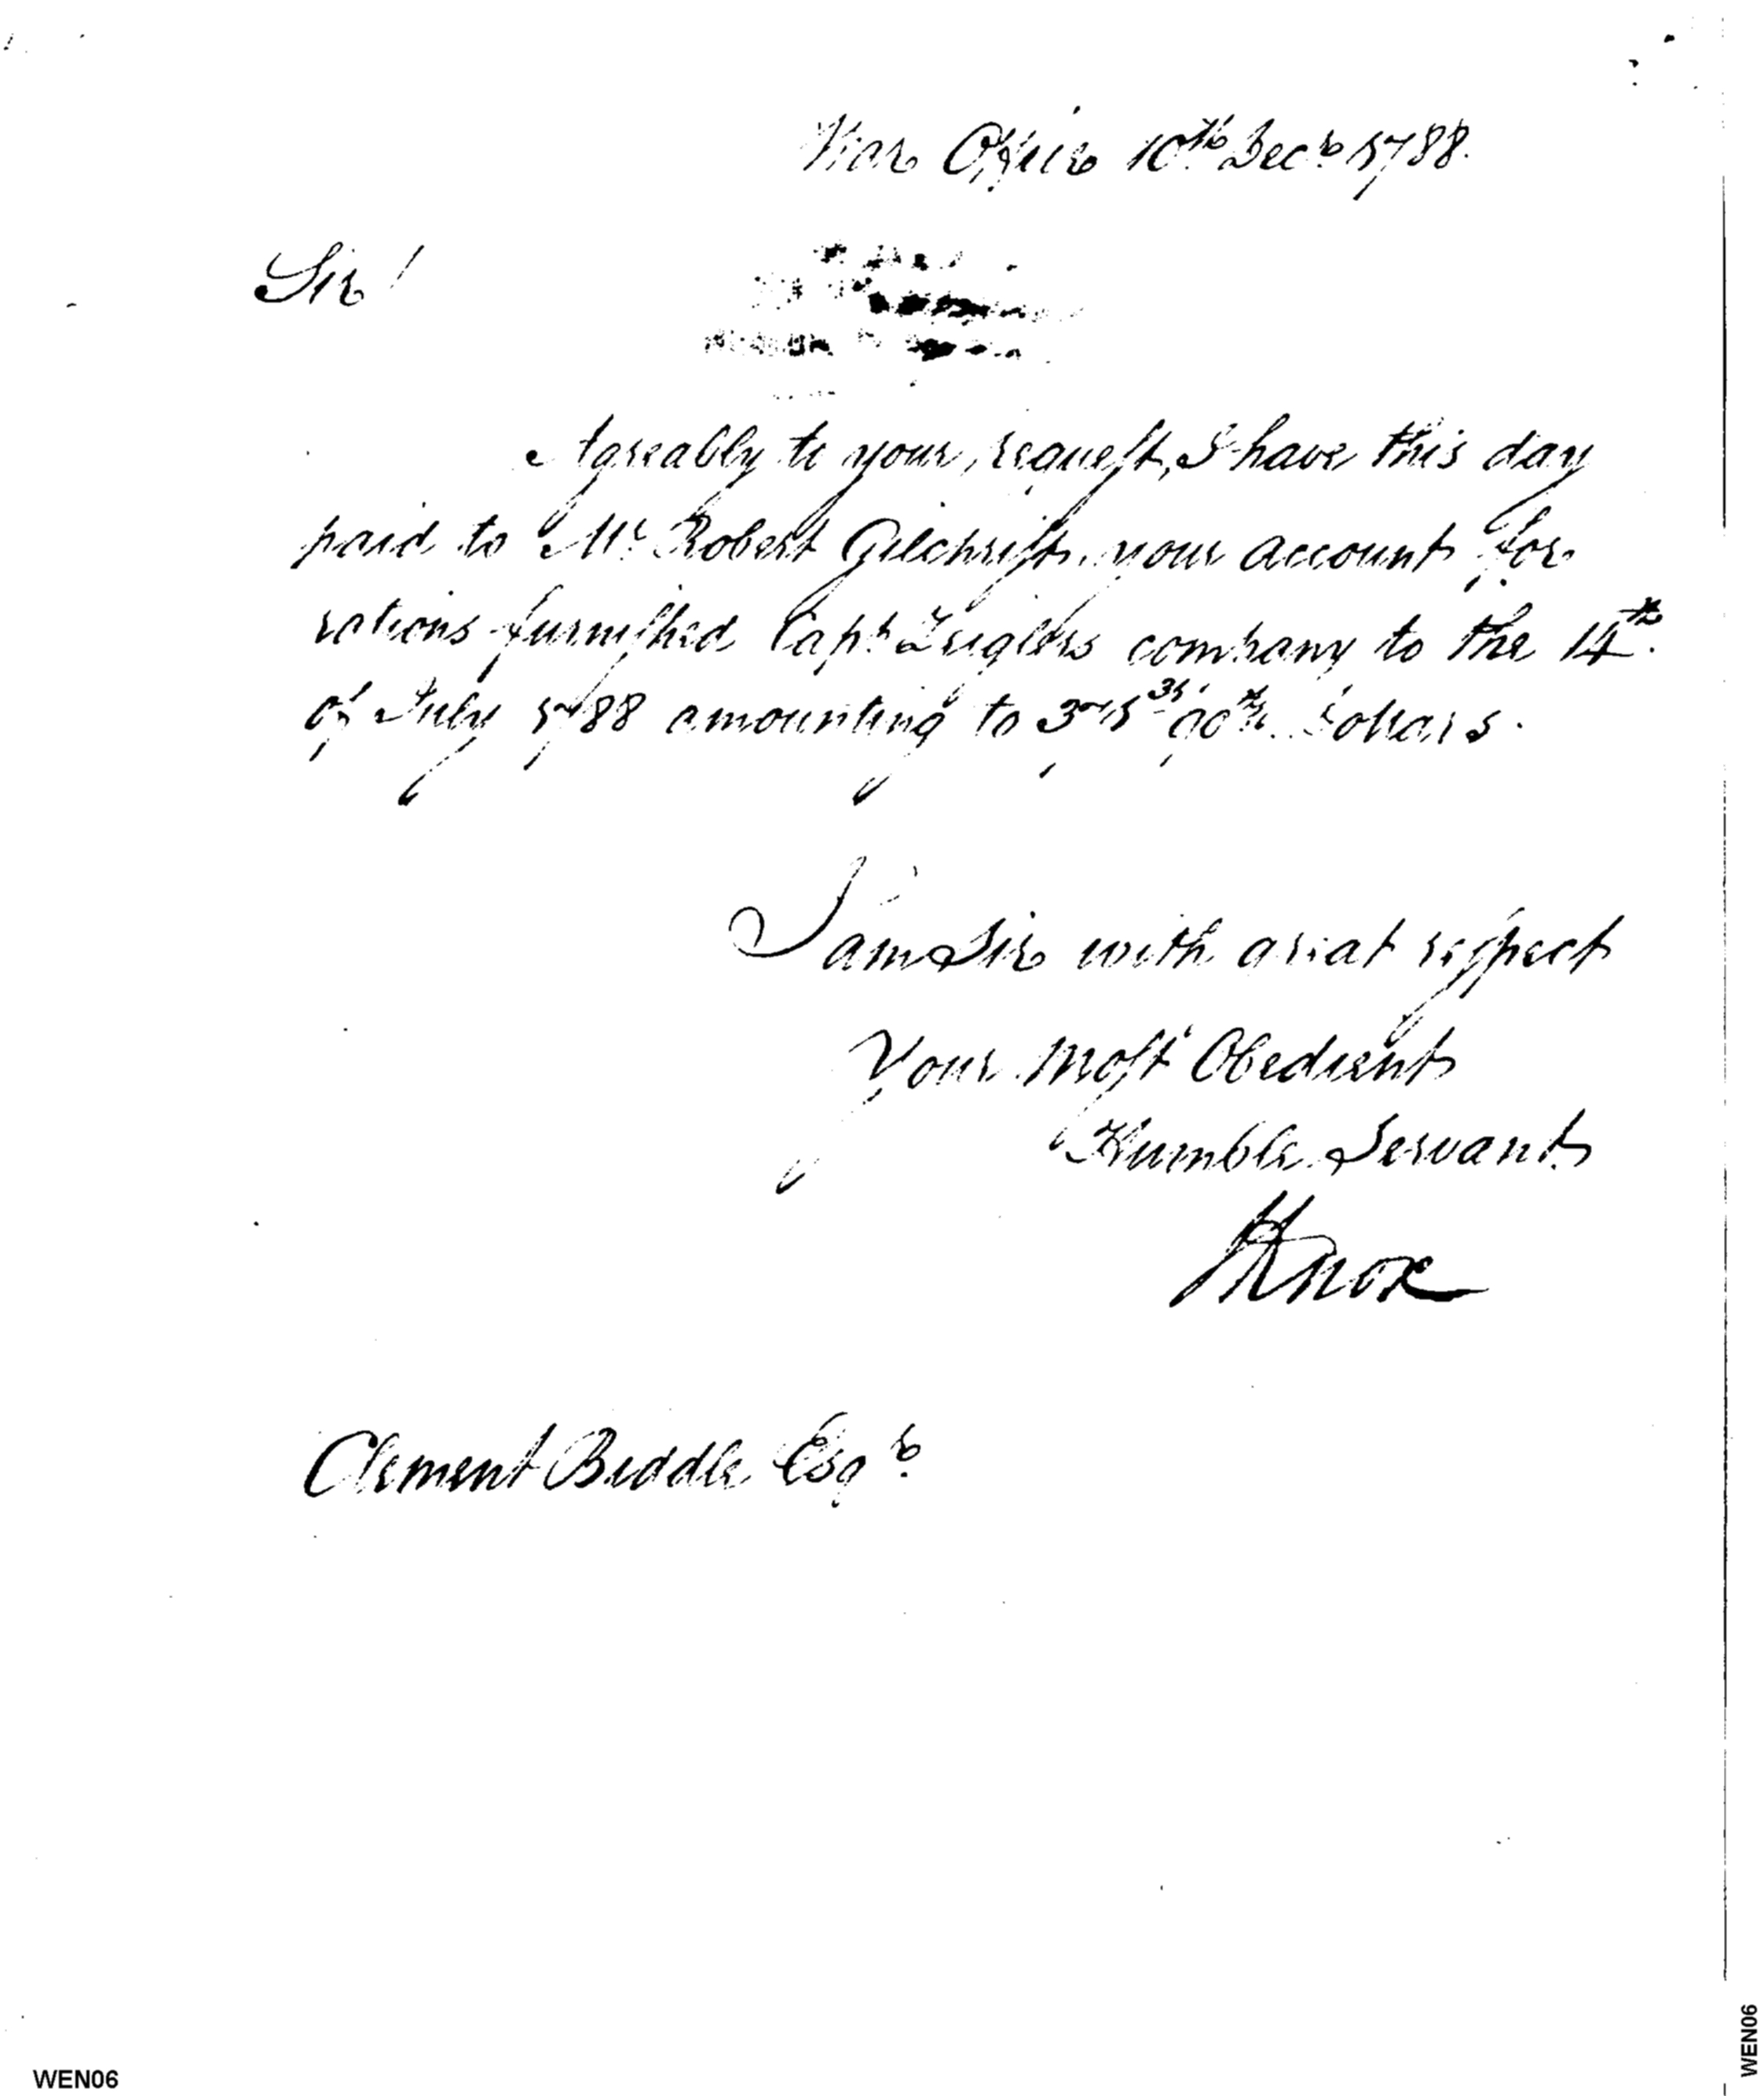 War Office 10th Decr 1788.
Sir!
Agreably to your request, I have this day
paid to Mr Robert Gilchrist, your account for
rations furnished Capt. Zieglers company to the 14th.
of July 1788 amounting to 90ths. Dollars.
I am Sir with great respect
Your Most Obedient
Humble Servant
HKnox
Clement Biddle Esqr.
WEN06
WEN06